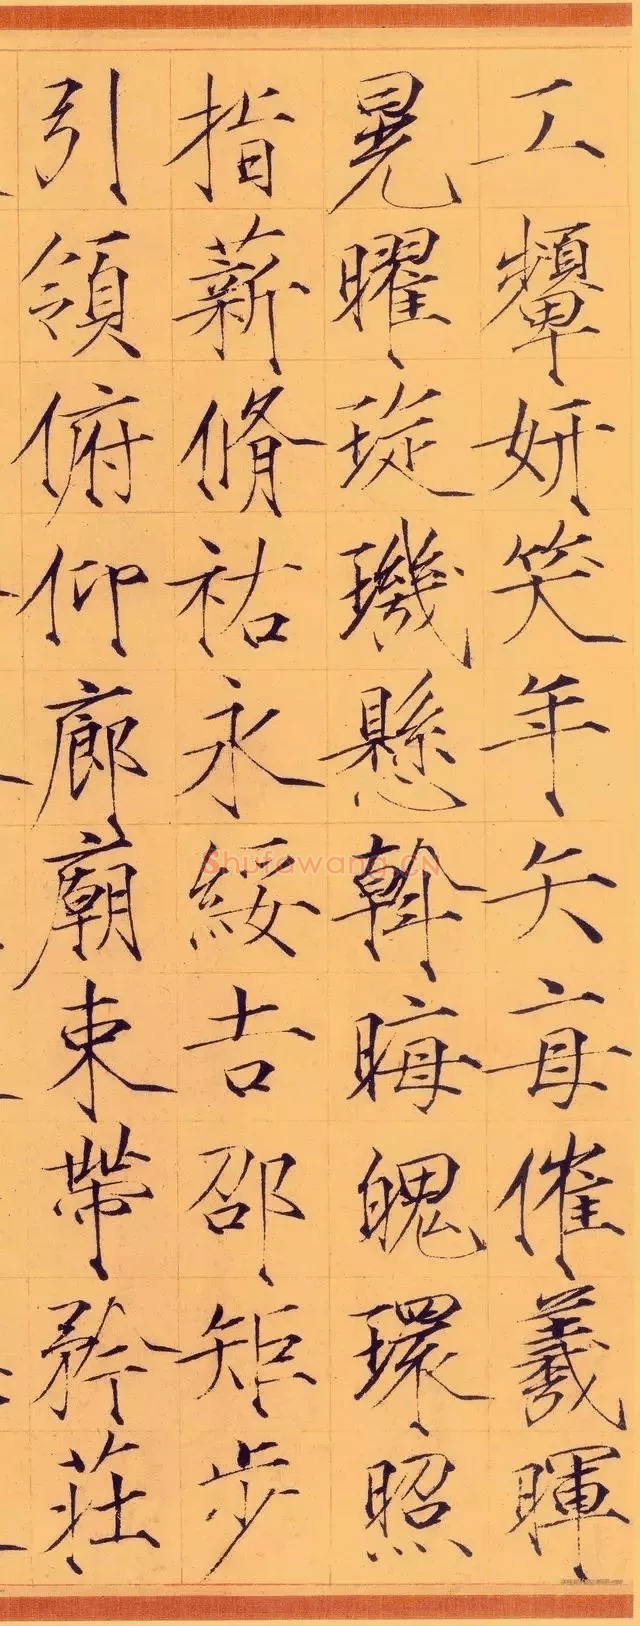 工顰妍笑年矢每催羲暉
晃曜琁璣懸斡晦魄環照
指薪脩祐永綏吉邵矩步
引領俯仰廊廟束帶矜莊
Shufawang.CN